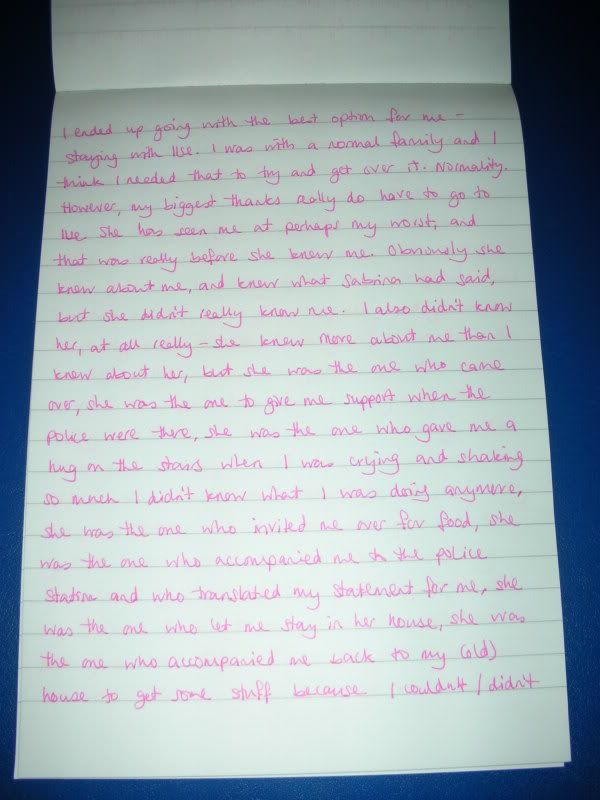 I ended up going with the best option for me -
staying with Ilse. I was with a normal family and I
think I needed that to try and get over it. Normality.
However, my biggest thanks really do have to go to
Ilse. She has seen me at perhaps my worst, and
that was really before she knew me. Obviously she
knew about me, and knew what Sabrina had said,
but she didn't really know me. I also didn't know
her, at all really - she knew more about me than I
knew about her, but she was the one who came
over, she was the one to give me support when the
police were there, she was the one who gave me a
hug on the stairs when I was crying and shaking
so much I didn't know what I was doing anymore,
she was the one who invited me over for food, she
was the one who accompanied me to the police
station and who translated my statement for me, she
was the one who let me stay in her house, she was
the one who accompanied me back to my (old)
house to get some stuff because I couldn't / didn't